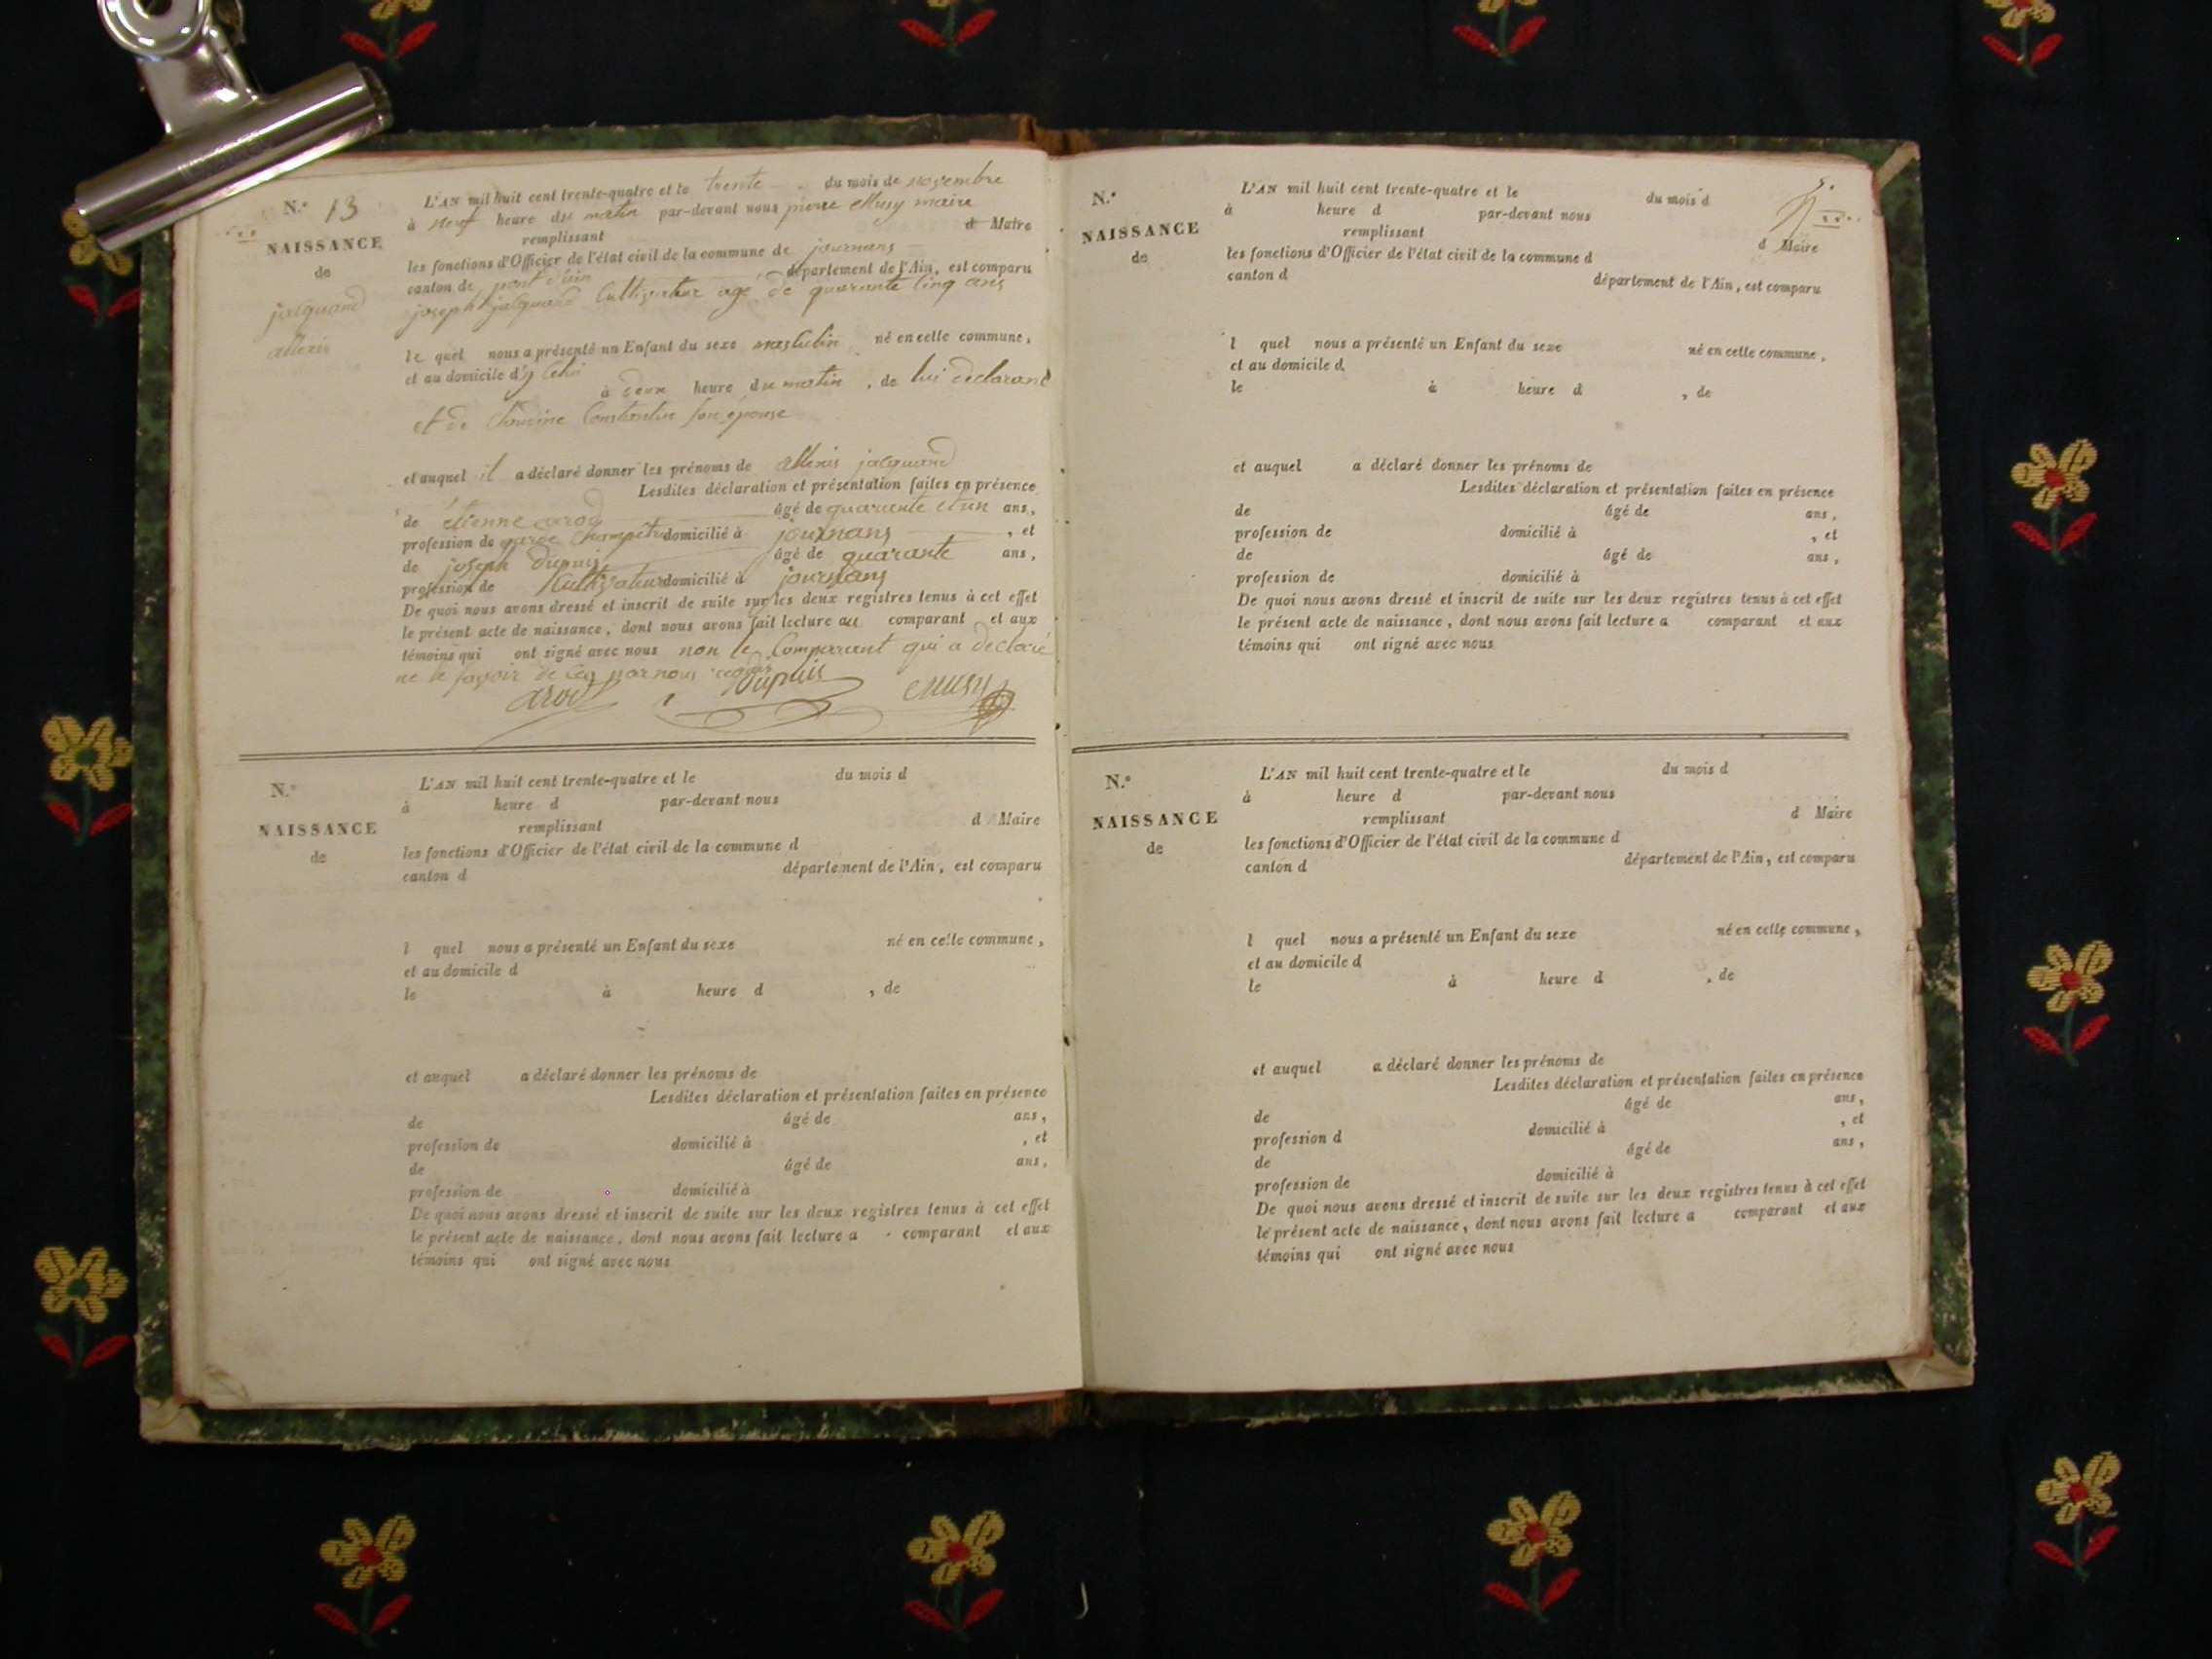 N.° 13
NAISSANCE
de
jacquand
allexis
L'AN mil huit cent trente-quatre et le trente du mois de novembre
à neuf heure du matin par-devant nous pierre Musy maire
remplissant d Maire
les fonctions d'Officier de l'état civil de la commune de journans
canton de pont d'ain département de l'Ain, est comparu
joseph jacquand Cultivateur agé de quarante cinq ans
le quel nous a présenté un Enfant du sexe masculin né en celle commune,
et au domicile d'y
à deux heure du matin, de lui déclarant
et de Constantin son épouse
et auquel il a déclaré donner les prénoms de allexis jacquand
Lesdites déclaration et présentation faites en présence
de étienne arod âgé de quarante et un ans,
profession de garde Champêtre domicilié à journans, et
de joseph Dupuis âgé de quarante ans,
profession de Cultivateur domicilié à journans
De quoi nous avons dressé et inscrit de suite sur les deux registres tenus à cet effet
le présent acte de naissance, dont nous avons fait lecture au comparant et aux
témoins qui ont signé avec nous non le Comparant qui a déclaré
ne le savoir de ceq par nous
arod Dupuis Musy
N.°
NAISSANCE
de
L'AN mil huit cent trente-quatre et le du mois d
à heure d par-devant nous
remplissant d Maire
les fonctions d'Officier de l'état civil de la commune d
canton d département de l'Ain, est comparu
l quel nous a présenté un Enfant du sexe né en celle commune,
et au domicile d
le à heure d , de
et auquel a déclaré donner les prénoms de
Lesdites déclaration et présentation faites en présence
de âgé de ans,
profession de domicilié à , et
de âgé de ans,
profession de domicilié à
De quoi nous avons dressé et inscrit de suite sur les deux registres tenus à cet effet
le présent acte de naissance, dont nous avons fait lecture a comparant et aux
témoins qui ont signé avec nous
N.°
NAISSANCE
de
L'AN mil huit cent trente-quatre et le du mois d
à heure d par-devant nous
remplissant d Maire
les fonctions d'Officier de l'état civil de la commune d
canton d département de l'Ain, est comparu
l quel nous a présenté un Enfant du sexe né en celle commune,
et au domicile d
le à heure d , de
et auquel a déclaré donner les prénoms de
Lesdites déclaration et présentation faites en présence
de âgé de ans,
profession de domicilié à , et
de âgé de ans,
profession de domicilié à
De quoi nous avons dressé et inscrit de suite sur les deux registres tenus à cet effet
le présent acte de naissance, dont nous avons fait lecture a comparant et aux
témoins qui ont signé avec nous
N.°
NAISSANCE
de
L'AN mil huit cent trente-quatre et le du mois d
à heure d par-devant nous
remplissant d Maire
les fonctions d'Officier de l'état civil de la commune d
canton d département de l'Ain, est comparu
l quel nous a présenté un Enfant du sexe né en celle commune,
et au domicile d
le à heure d , de
et auquel a déclaré donner les prénoms de
Lesdites déclaration et présentation faites en présence
de âgé de ans,
profession d domicilié à , et
de âgé de ans,
profession de domicilié à
De quoi nous avons dressé et inscrit de suite sur les deux registres tenus à cet effet
le présent acte de naissance, dont nous avons fait lecture a comparant et aux
témoins qui ont signé avec nous